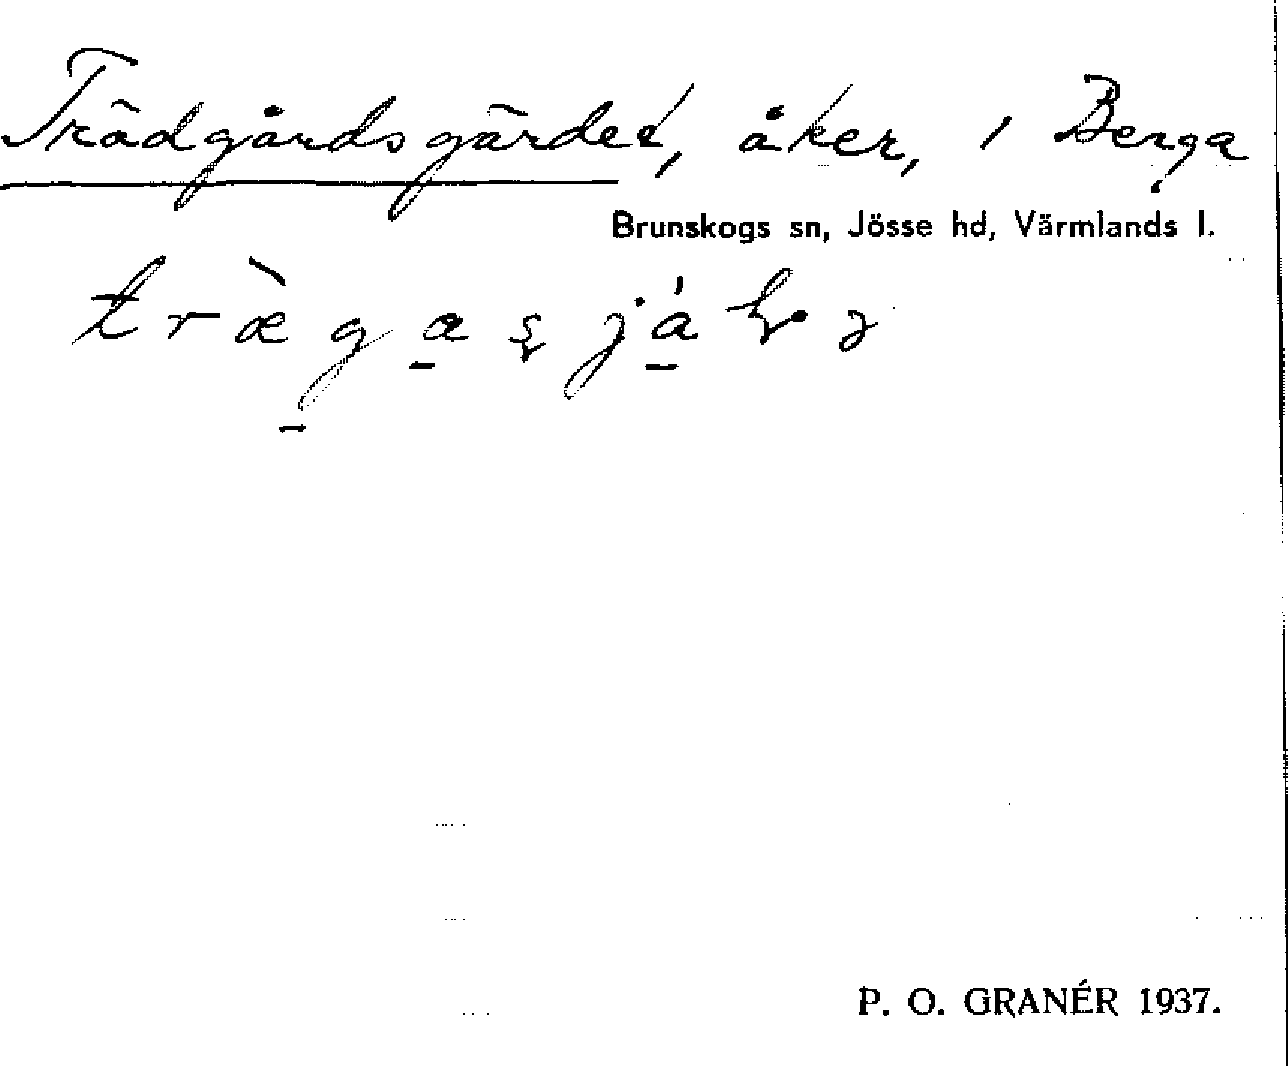 Trädgårdsgärdet, åker, i Berga
Brunskogs sn, Jösse hd, Värmlands l.
P. O. GRANÉR 1937.